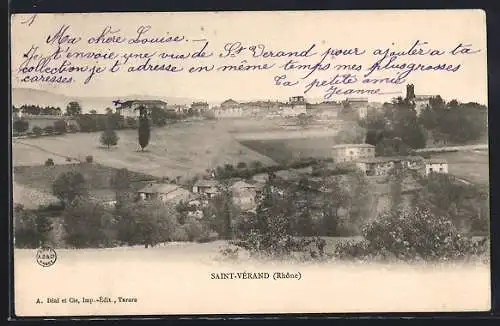 Ma chère Louise. —
Je t'envoie une vue de St Verand pour ajouter a ta
collection et je t'adresse en même temps mes plus grosses
caresses.
Ta petite amie
Jeanne
SAINT-VÉRAND (Rhône)
A. Déal et Cie, Imp.-Édit., Tarare